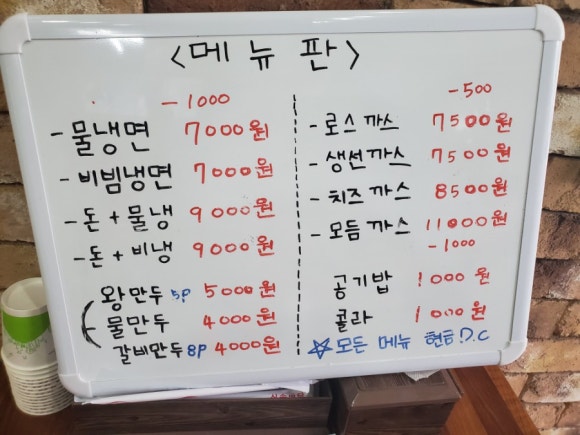 <메뉴판>
-1000
-물냉면 7000원
-비빔냉면 7000원
-돈+물냉 9000원
-돈+비냉 9000원
왕만두 5P 5000원
물만두 4000원
갈비만두 8P 4000원
-500
-로스까스 7500원
-생선까스 7500원
-치즈까스 8500원
-모듬까스 11000원
-1000
공기밥 1000원
콜라 1000원
☆모든 메뉴 현금 D.C